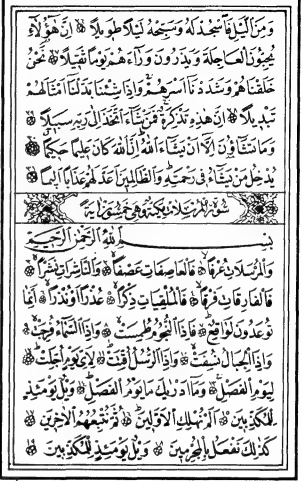 وَمِنَ الَّيْلِ فَاسْجُدْ لَهُ وَسَبِّحْهُ لَيْلًا طَوِيلًا ۞ اِنَّ هٰٓؤُلَاءِ
يُحِبُّونَ الْعَاجِلَةَ وَيَذَرُونَ وَرَاءَهُمْ يَوْمًا ثَقِيلًا ۞ نَحْنُ
خَلَقْنَاهُمْ وَشَدَدْنَا اَسْرَهُمْ وَاِذَا شِئْنَا بَدَّلْنَا اَمْثَالَهُمْ
تَبْدِيلًا ۞ اِنَّ هٰذِهِ تَذْكِرَةٌ فَمَنْ شَاءَ اتَّخَذَ اِلٰى رَبِّهِ سَبِيلًا ۞
وَمَا تَشَاؤُنَ اِلَّا اَنْ يَشَاءَ اللّٰهُ اِنَّ اللّٰهَ كَانَ عَلِيمًا حَكِيمًا ۞
يُدْخِلُ مَنْ يَشَاءُ فِى رَحْمَتِهِ وَالظَّالِمِينَ اَعَدَّ لَهُمْ عَذَابًا اَلِيمًا
سُورَةُ الْمُرْسَلَاتِ مَكِّيَّةٌ وَهِىَ خَمْسُونَ اٰيَةً
بِسْمِ اللّٰهِ الرَّحْمٰنِ الرَّحِيمِ
وَالْمُرْسَلَاتِ عُرْفًا ۞ فَالْعَاصِفَاتِ عَصْفًا ۞ وَالنَّاشِرَاتِ نَشْرًا ۞
فَالْفَارِقَاتِ فَرْقًا ۞ فَالْمُلْقِيَاتِ ذِكْرًا ۞ عُذْرًا اَوْ نُذْرًا ۞ اِنَّمَا
تُوعَدُونَ لَوَاقِعٌ ۞ فَاِذَا النُّجُومُ طُمِسَتْ ۞ وَاِذَا السَّمَاءُ فُرِجَتْ ۞
وَاِذَا الْجِبَالُ نُسِفَتْ ۞ وَاِذَا الرُّسُلُ اُقِّتَتْ ۞ لِاَىِّ يَوْمٍ اُجِّلَتْ ۞
لِيَوْمِ الْفَصْلِ ۞ وَمَا اَدْرٰيكَ مَا يَوْمُ الْفَصْلِ ۞ وَيْلٌ يَوْمَئِذٍ
لِلْمُكَذِّبِينَ ۞ اَلَمْ نُهْلِكِ الْاَوَّلِينَ ۞ ثُمَّ نُتْبِعُهُمُ الْاٰخِرِينَ ۞
كَذٰلِكَ نَفْعَلُ بِالْمُجْرِمِينَ ۞ وَيْلٌ يَوْمَئِذٍ لِلْمُكَذِّبِينَ ۞